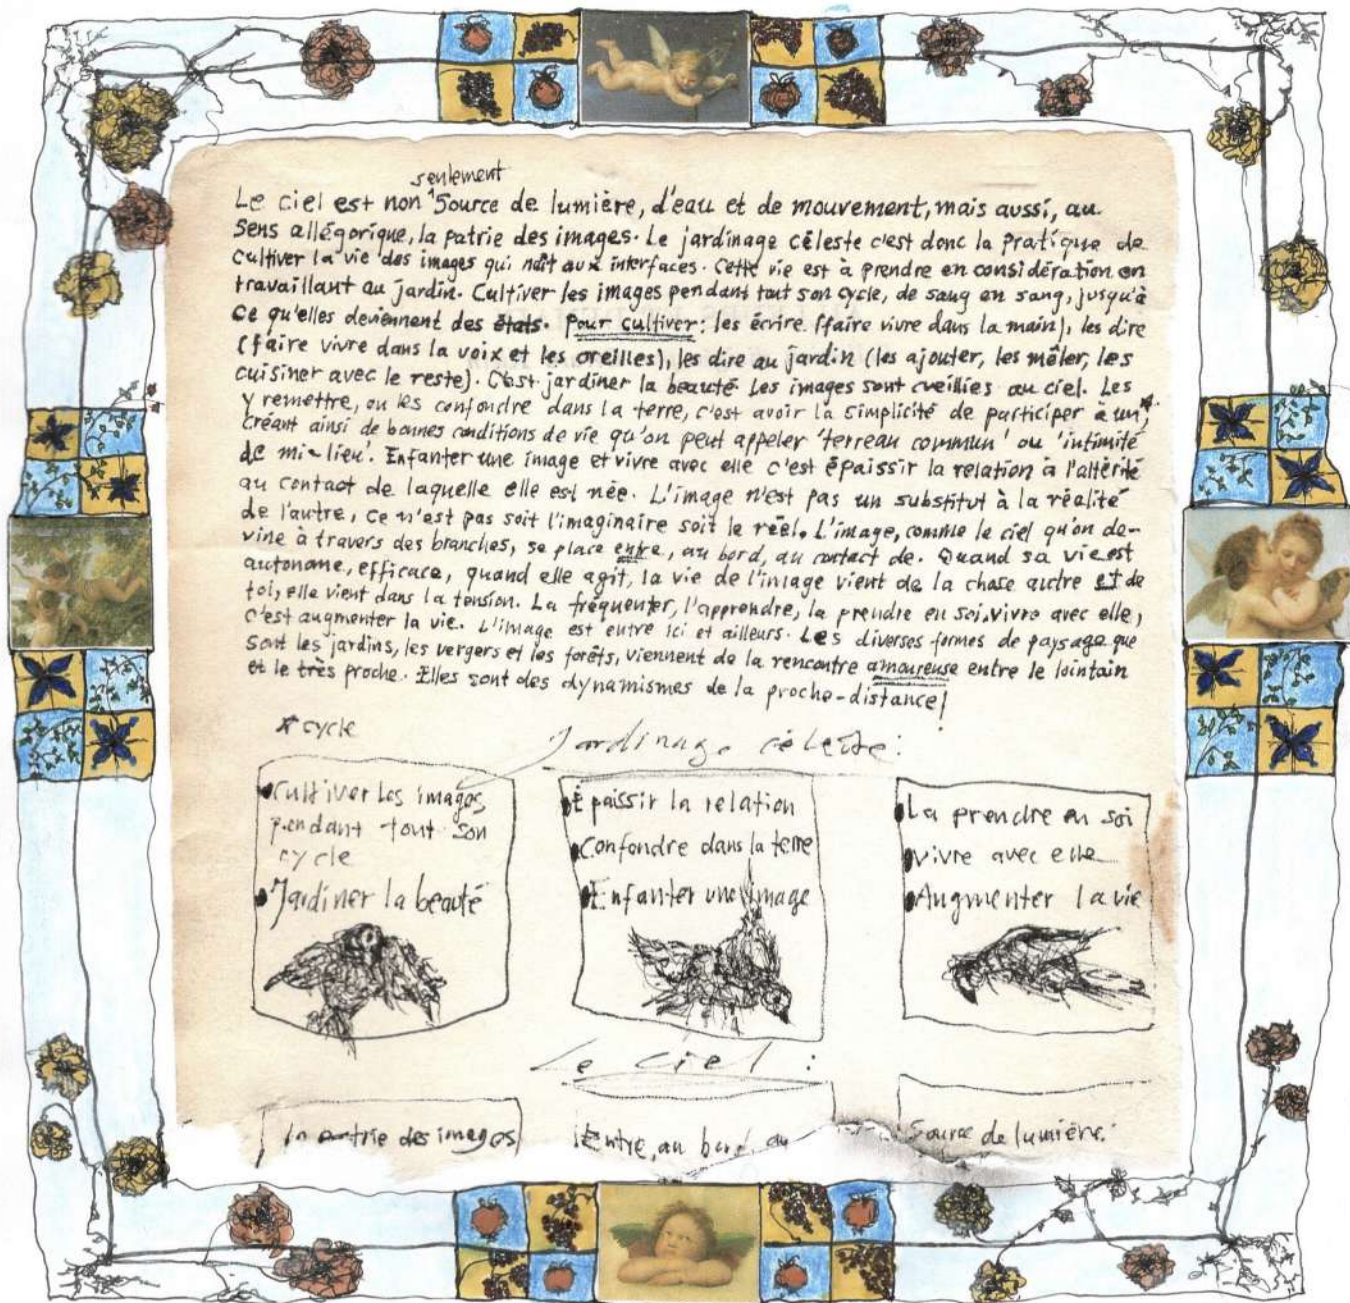 Le ciel est non seulement source de lumière, d'eau et de mouvement, mais aussi, au
sens allégorique, la patrie des images. Le jardinage céleste c'est donc la pratique de
cultiver la vie des images qui naît aux interfaces. Cette vie est à prendre en considération en
travaillant au jardin. Cultiver les images pendant tout son cycle, de sang en sang, jusqu'à
ce qu'elles deviennent des états. Pour cultiver : les écrire (faire vivre dans la main), les dire
(faire vivre dans la voix et les oreilles), les dire au jardin (les ajouter, les mêler, les
cuisiner avec le reste). C'est jardiner la beauté. Les images sont cueillies au ciel. Les
y remettre, ou les confondre dans la terre, c'est avoir la simplicité de participer à un*,
créant ainsi de bonnes conditions de vie qu'on peut appeler 'terreau commun' ou 'intimité
de mi-lieu'. Enfanter une image et vivre avec elle c'est épaissir la relation à l'altérité
au contact de laquelle elle est née. L'image n'est pas un substitut à la réalité
de l'autre, ce n'est pas soit l'imaginaire soit le réel. L'image, comme le ciel qu'on de-
vine à travers des branches, se place entre, au bord, au contact de. Quand sa vie est
autonome, efficace, quand elle agit, la vie de l'image vient de la chose autre et de
toi, elle vient dans la tension. La fréquenter, l'apprendre, la prendre en soi, vivre avec elle,
c'est augmenter la vie. L'image est entre ici et ailleurs. Les diverses formes de paysage que
sont les jardins, les vergers et les forêts, viennent de la rencontre amoureuse entre le lointain
et le très proche. Elles sont des dynamismes de la proche-distance!
* cycle
Jardinage céleste :
• Cultiver les images
pendant tout son
cycle
• Jardiner la beauté
• Épaissir la relation
• Confondre dans la terre
• Enfanter une image
• La prendre en soi
• vivre avec elle
• Augmenter la vie
Le ciel :
la patrie des images
Entre, au bord, au
Source de lumière.